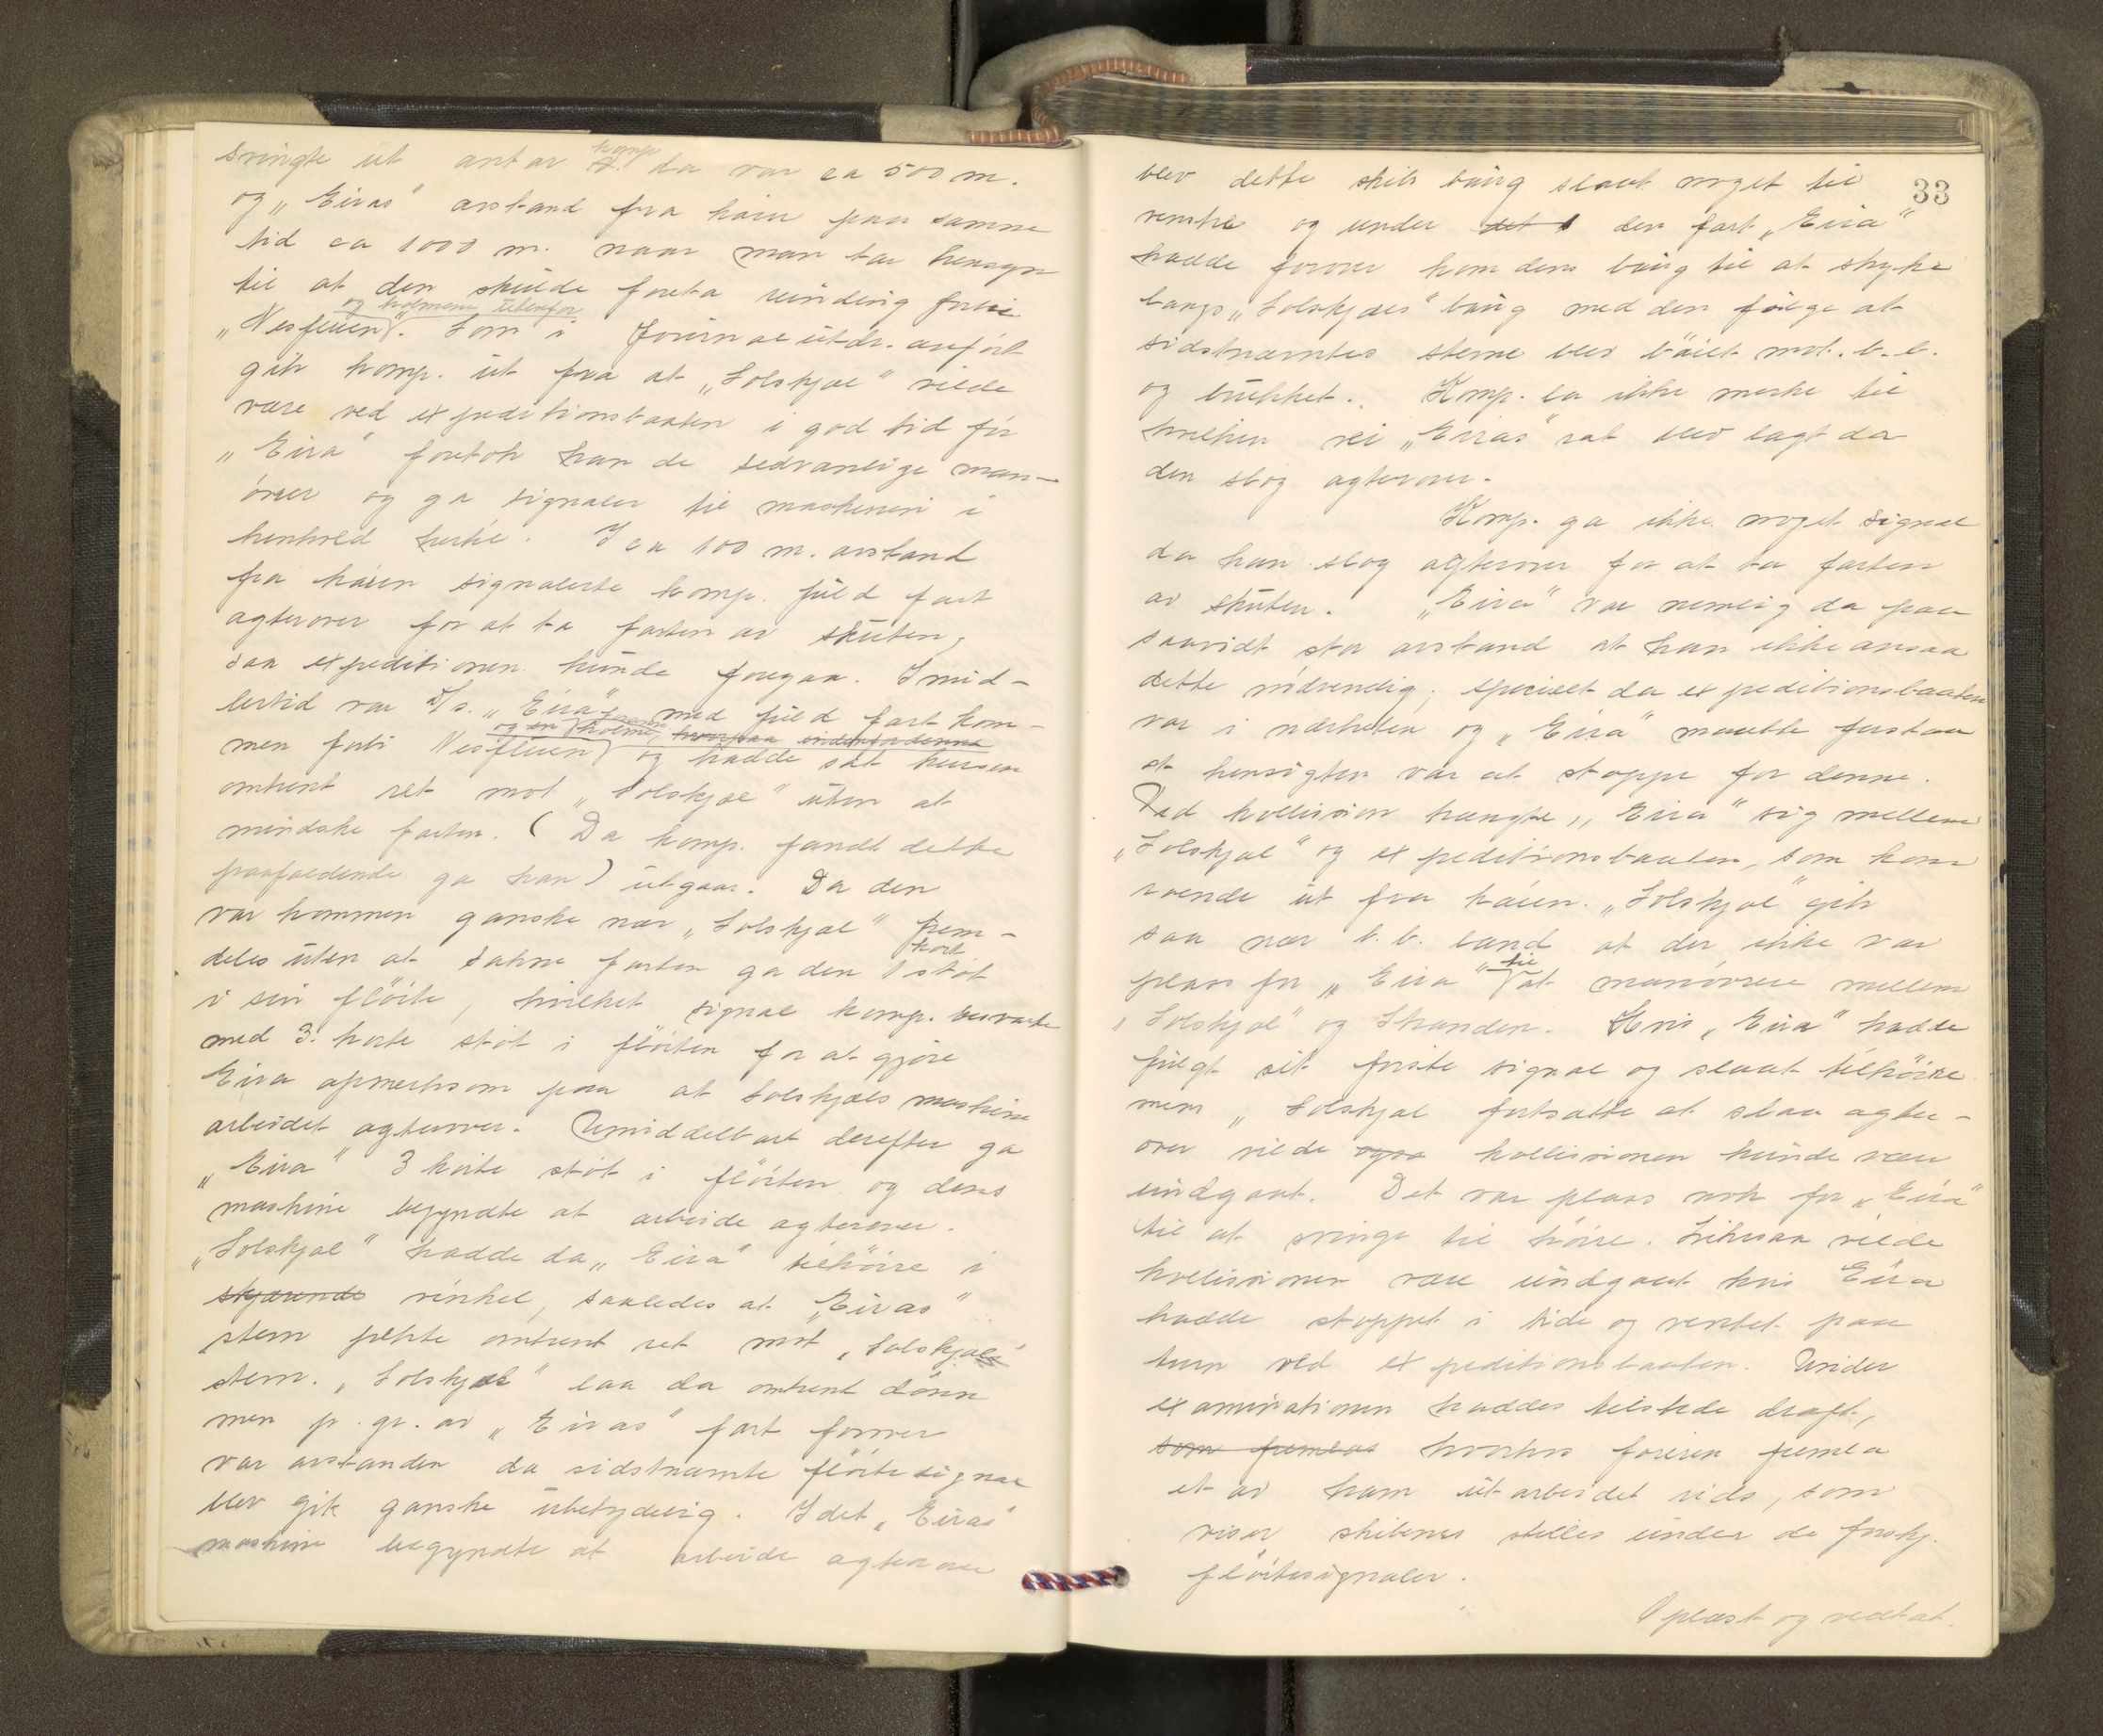 svingte ut antar komp. da var ca 500 m.
og „Eiras" avstand fra kaien paa samme
tid ca 1000 m. naar man tar hensyn
til at den skulde foreta runding forbi
„Nesfluen" og holmene utenfor. Som i Journalutdr. anført
gik komp. ut fra at „Solskjel" vilde
være ved expeditionsbaaten i god tid før
„Eira" foretok han de sedvanlige man-
ørrer og ga signaler til maskineri i
henhold hertil. I ca 100 m. avstand
fra kaien signalerte komp. fuld fart
agterover for at ta farten av skuten,
saa expeditionen kunde foregaa. Imid-
lertid var D/s. „Eira" med fuld fart kom-
men forbi Nesfluen og en holme, hvorpaa og hadde sat kursen
omtrent ret mot „Solskjel" uten at
mindske farten. (Da komp. fandt dette
paafaldende ga han) utgaar. Da den
var kommen ganske nær „Solskjel" frem-
deles uten at sakne farten ga den 1 kort støt
i sin fløite, hvilket signal komp. besvarte
med 3 korte støt i fløiten for at gjøre
Eira opmerksom paa at Solskjels maskine
arbeidet agterover. Umiddelbart derefter ga
„Eira" 3 korte støt i fløiten og dens
maskine begyndte at arbeide agterover.
„Solskjel" hadde da „Eira" tilhøire i
skjærende vinkel, saaledes at „Eiras"
stem pekte omtrent ret mot „Solskjels"
stem. „Solskjel" laa da omtrent dønn
men p. gr. av „Eiras" fart forover
var avstanden da sidstnævnte fløitesignal
blev git ganske ubetydelig. Idet „Eiras"
maskine begyndte at arbeide agterover
33
blev dette skibs baug slaat noget til
venstre og under det den fart „Eira"
hadde forover kom dens baug til at stryke
langs „Solskjels" baug med den følge at
sidstnævntes stevne blev bøiet mot b.b.
og brukket. Komp. la ikke merke til
hvilken vei „Eiras" rat blev lagt da
den slog agterover.
Komp. ga ikke noget signal
da han slog agterover for at ta farten
av skuten. „Eira" var nemlig da paa
saavidt stor avstand at han ikke ansaa
dette nødvendig, specielt da expeditionsbaaten
var i nærheten og „Eira" maatte forstaa
at hensigten var at stoppe for denne.
Ved kollision trængte „Eira" sig mellem
„Solskjel" og expeditionsbaaten, som kom
roende ut fra kaien. „Solskjel" gik
saa nær b.b. land at der ikke var
plass for „Eira" til at manøvrere mellem
„Solskjel" og Stranden. Hvis „Eira" hadde
fulgt sit første signal og slaat tilhøire
mens „Solskjel fortsatte at slaa agter-
over vilde ogsa kollisionen kunde være
undgaat. Det var plass nok for „Eira"
til at svinge til høire. Likesaa vilde
kollisionen være undgaat hvis Eira
hadde stoppet i tide og ventet paa
turn ved expeditionsbaaten. Under
examinationen haddes tilstede draft,
som fremlas hvorhos føreren fremla
et av ham utarbeidet rids, som
viser skibenes stilles under de forskj.
fløitesignaler.
Oplæst og vedtat.